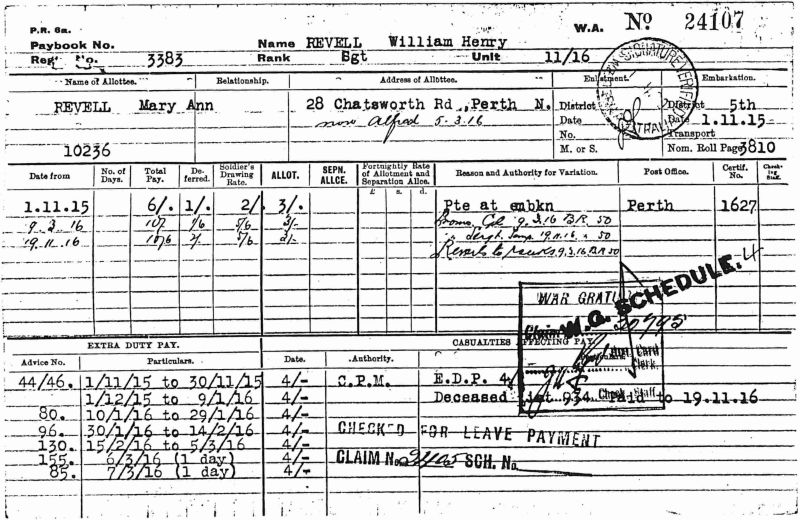 P.R. 6a.
W.A. No 24107
Paybook No. Name REVELL William Henry
Regt No. 3383 Rank Sgt Unit 11/16
Name of Allottee. Relationship. Address of Allottee. Enlistment. Embarkation.
REVELL Mary Ann 28 Chatsworth Rd.,Perth N. District District 5th
now Alfred 5.3.16 Date Date 1.11.15
No. Transport
10236 M. or S. Nom. Roll Page 3810
Date from No. of Days. Total Pay. De-ferred. Soldier's Drawing Rate. ALLOT. SEPN. ALLCE. Fortnightly Rate of Allotment and Separation Allce. £ s. d. Reason and Authority for Variation. Post Office. Certif. No. Check-ing Staff.
1.11.15 6/. 1/. 2/ 3/. Pte at embkn Perth 1627
9 3 16 10/ 1/6 5/6 3/- Prom. Cpl 9.3.16 B.R. 50
19.11.16 10/6 2/. 5/6 3/- Sergt Temp. 19.11.16 50
Reverts to ranks 9.3.16 B.R 50
WAR GRATU
W.G. SCHEDULE. 4
Claim 20795
EXTRA DUTY PAY. CASUALTIES AFFECTING PAY
Advice No. Particulars. Date. Authority. Card Clerk.
44/46. 1/11/15 to 30/11/15 4/- C.P.M. E.D.P. 4/
1/12/15 to 9/1/16 4/- Deceased List 934 Paid to 19.11.16
Check Staff.
80. 10/1/16 to 29/1/16 4/-
96. 30/1/16 to 14/2/16 4/- CHECKED FOR LEAVE PAYMENT
130. 15/2/16 to 5/3/16 4/-
155. 6/3/16 (1 day) 4/- CLAIM No. SCH. No.
85. 7/3/16 (1 day) 4/-